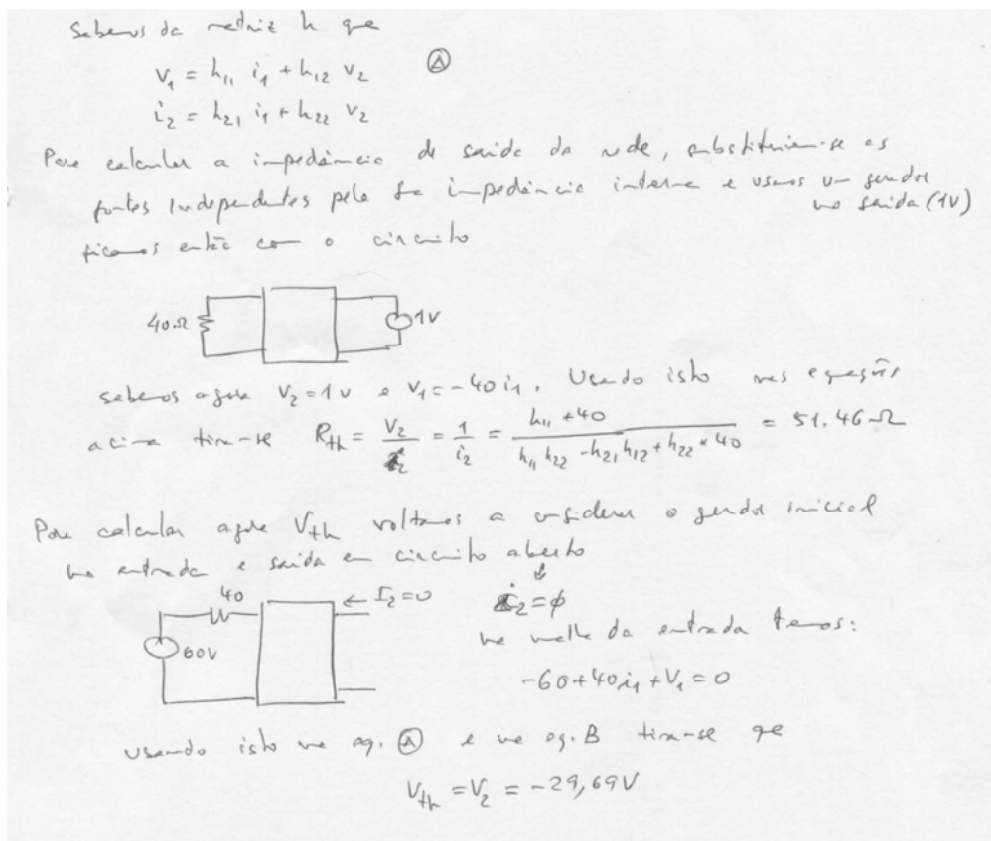 Sabemos da matriz h que
v1 = h11 i1 + h12 v2 Ⓐ
i2 = h21 i1 + h22 v2
Para calcular a impedância de saída da rede, substituiem-se as
fontes independentes pela sua impedância interna e usamos um gerador
na saída (1V)
ficamos então com o circuito
40Ω
1V
sabemos agora V2 = 1v e V1 = -40 i1. Usando isto nas equações
acima tira-se Rth = V2/i2 = 1/i2 = (h11 + 40)/(h11 h22 - h21 h12 + h22 × 40) = 51.46Ω
Para calcular agora Vth voltamos a considerar o gerador inicial
na entrada e saída em circuito aberto
40
← I2=0
60V
i2 = φ
na malha da entrada temos:
-60+40i1+V1=0
usando isto na eq. Ⓐ e na eq. B tira-se que
Vth = V2 = -29,69V